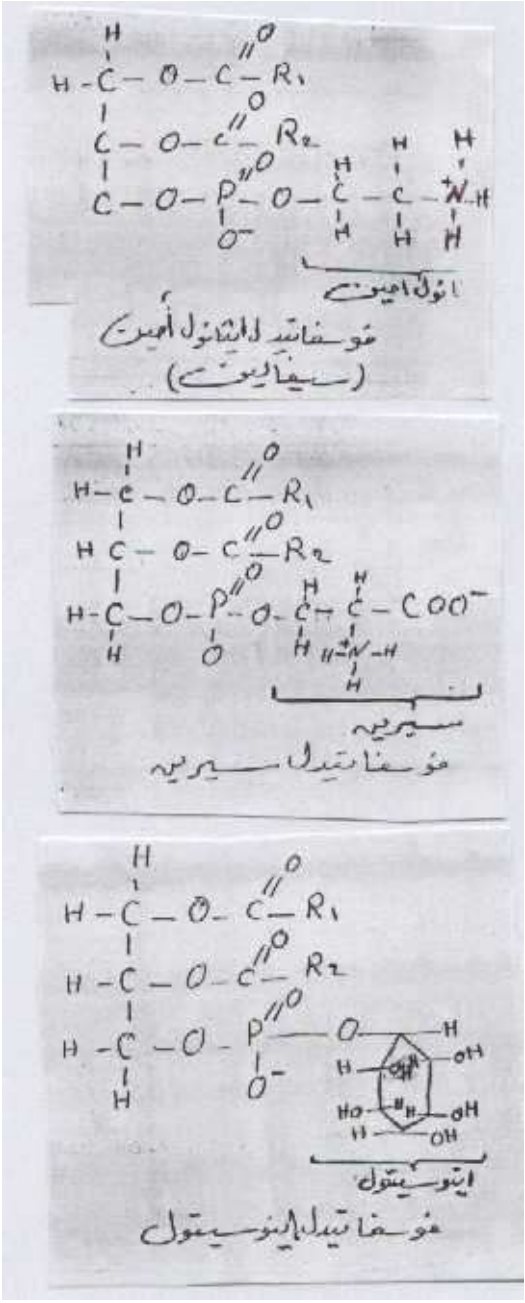 H
O
H - C - O - C - R₁
O
C - O - C - R₂
O H H H
C - O - P - O - C - C - N⁺ - H
O⁻ H H H
اثول امين
فوسفاتيدل ايثانول أمين
(سيفالين)
H
O
H - C - O - C - R₁
O
H C - O - C - R₂
O H H
H - C - O - P - O - C - C - COO⁻
H O H H - N⁺ - H
H
سيرين
فوسفاتيدل سيرين
H
O
H - C - O - C - R₁
O
H - C - O - C - R₂
O
H - C - O - P - O - H
H O⁻ H OH OH
HO H H OH
H OH
اينوسيتول
فوسفاتيدل إينوسيتول